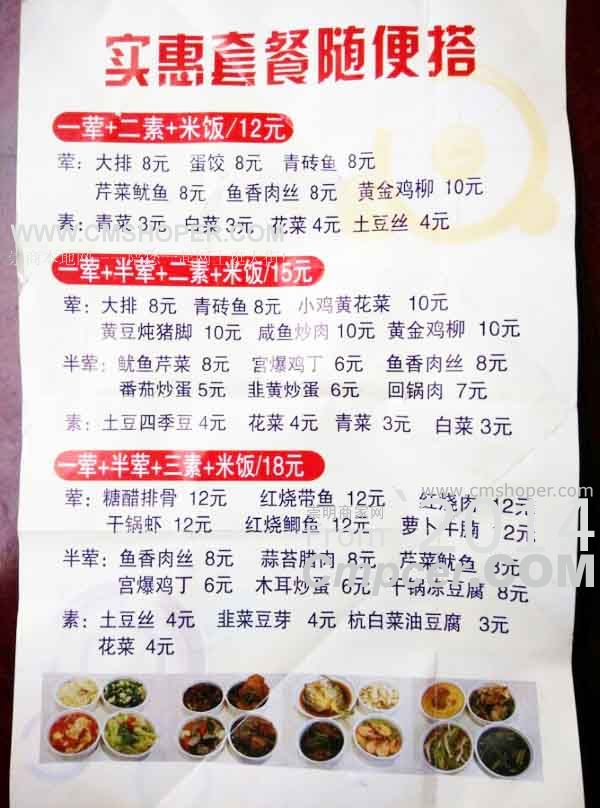 实惠套餐随便搭
一荤+二素+米饭/12元
荤：大排 8元 蛋饺 8元 青砖鱼 8元
芹菜鱿鱼 8元 鱼香肉丝 8元 黄金鸡柳 10元
素：青菜 3元 白菜 3元 花菜 4元 土豆丝 4元
WWW.CMSHOPER.COM
一荤+半荤+二素+米饭/15元
荤：大排 8元 青砖鱼 8元 小鸡黄花菜 10元
黄豆炖猪脚 10元 咸鱼炒肉 10元 黄金鸡柳 10元
半荤：鱿鱼芹菜 8元 宫爆鸡丁 6元 鱼香肉丝 8元
番茄炒蛋 5元 韭黄炒蛋 6元 回锅肉 7元
素：土豆四季豆 4元 花菜 4元 青菜 3元 白菜 3元
一荤+半荤+三素+米饭/18元
www.cmshoper.com
荤：糖醋排骨 12元 红烧带鱼 12元 红烧肉 12元
崇明商家网
干锅虾 12元 红烧鲫鱼 12元 萝卜牛腩 12元
From 2014
半荤：鱼香肉丝 8元 蒜苔腊肉 8元 芹菜鱿鱼 8元
Cmpcer.COM
宫爆鸡丁 6元 木耳炒蛋 6元 干锅冻豆腐 8元
素：土豆丝 4元 韭菜豆芽 4元 杭白菜油豆腐 3元
花菜 4元